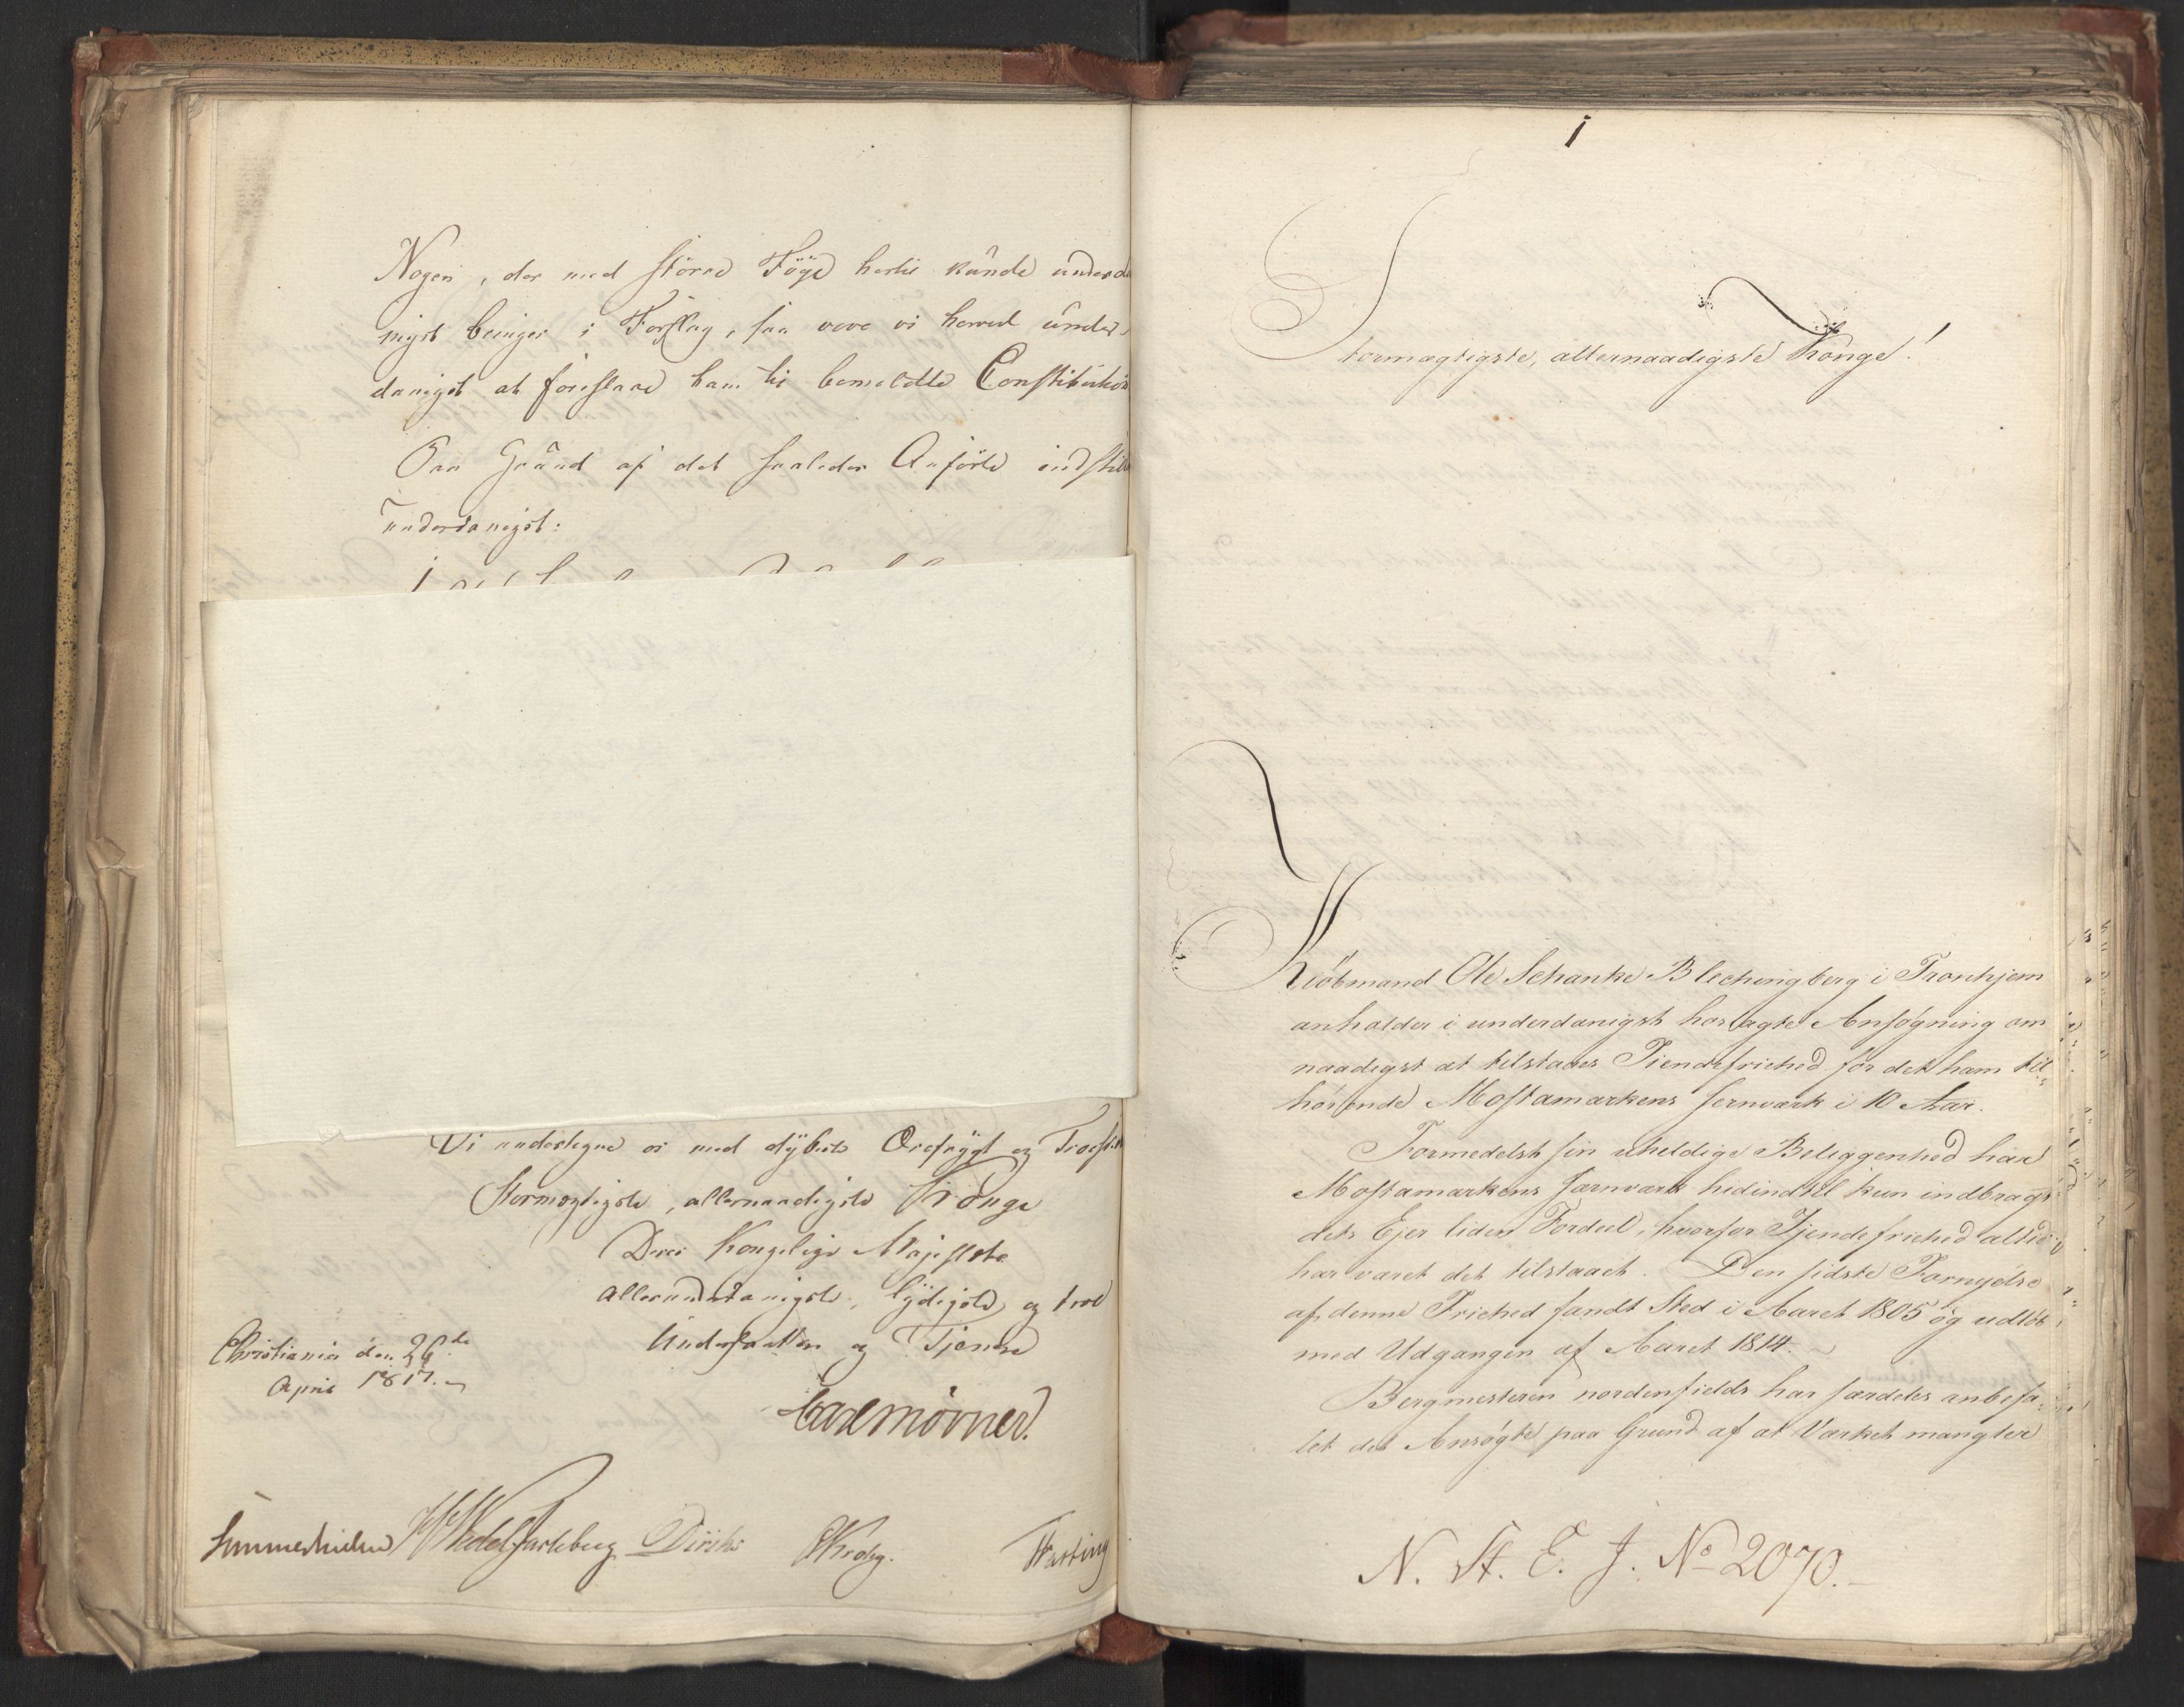 Nogen, der med större Föÿe hertil kunde underda
nigst bringes i Forslag, saa vove vi herved under-
danigst at foreslaae ham til bemeldte Constitution
Paa Grund af det saaledes Anförte indstil
underdanigst:
Vi undertegne os med dÿbeste Ærefrÿgt og Troeskab
Stormægtigste, allernaadigste Konge
Deres Kongelige Majestets
allerunderdanigste, lÿdigste og troe
Undersaatter og Tjenere
Christiania den 26de
April 1817.
Carl Mörner.
Sommerhielm HWedel Jarlsberg Diriks Krog. Fasting
1
Stormægtigste, allernaadigste Konge!
Kiöbmand Ole Schanke Blechingberg i Tronhjem
anholder i underdanigst hoslagte Ansøgning om
naadigst at tilstaaes Tiendefriehed for det ham til-
hørende Mostamarkens Jernværk i 10 Aar.
Formedelst sin uheldige Beliggenhed har
Mostamarkens Jærnværk hidindtil kun indbragt
dets Ejer liden Fordeel, hvorfor Tjendefriehed altid
har været det tilstaaet. Den sidste Fornyelse
af denne Friehed fandt Sted i Aaret 1805 og udløb
med Udgangen af Aaret 1814.
Bergmesteren nordenfields har særdeles anbefa-
let det Ansøgte paa Grund af at Værket mangler
N. St. E. J. No 2070.